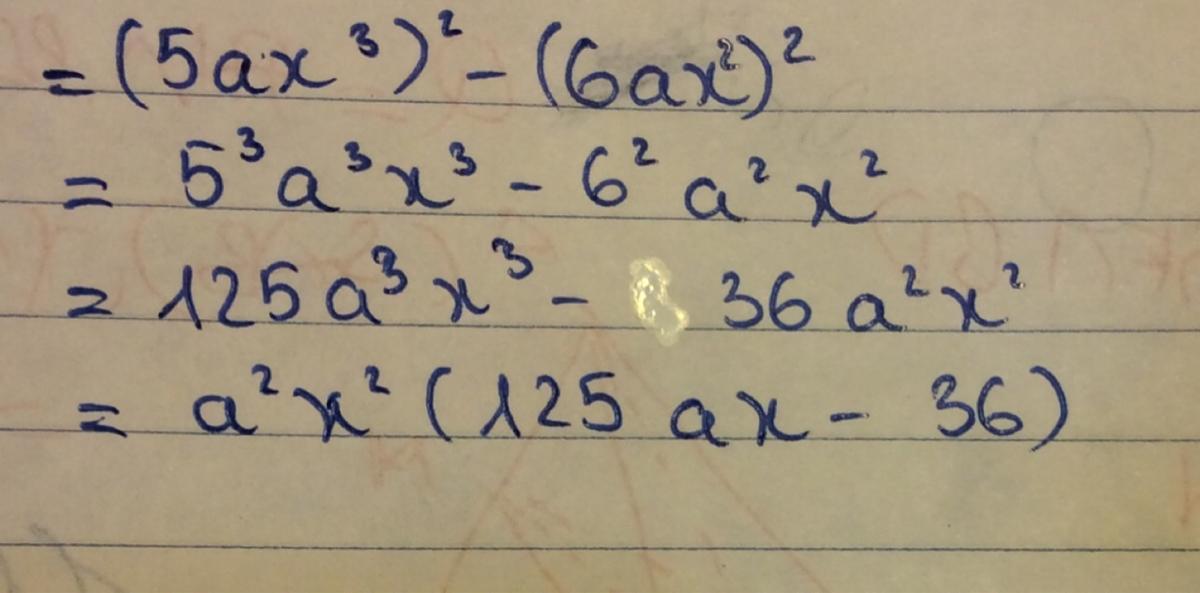 = (5ax³)² - (6ax²)²
= 5³a³x³ - 6²a²x²
= 125a³x³ - 36a²x²
= a²x²(125ax - 36)